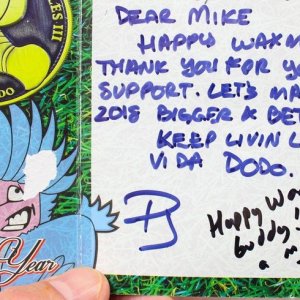 ES III
DO
DEAR MIKE
HAPPY WAXM
THANK YOU FOR YO
SUPPORT. LET'S MA
2018 BIGGER & BET
KEEP LIVIN L
VIDA DODO.
Happy Wa
buddy
a m
Year